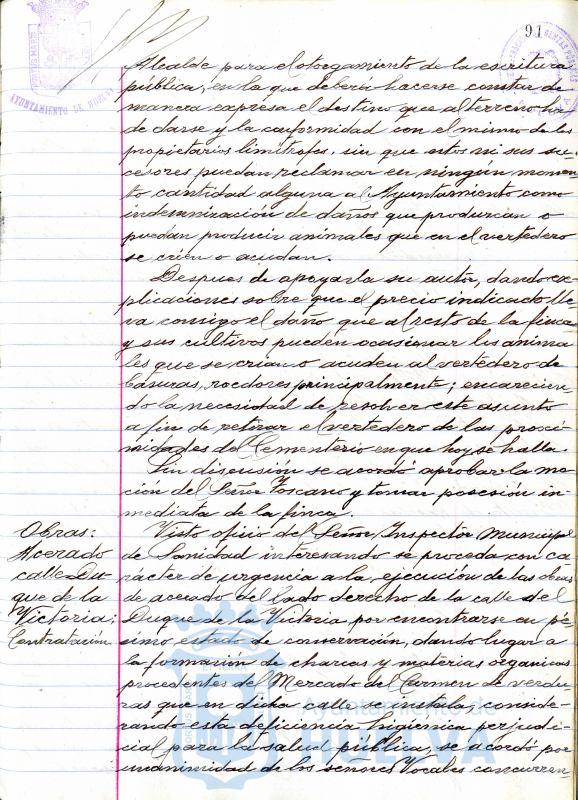 91
AYUNTAMIENTO DE HUELVA
Alcalde para el otorgamiento de la escritura
pública, en la que deberá hacerse constar de
manera expresa el destino que al terreno ha
de darse y la conformidad con el mismo de los
propietarios limítrofes, sin que estos ni sus su-
cesores puedan reclamar en ningún momen-
to cantidad alguna al Ayuntamiento como
indemnización de daños que produzcan o
puedan producir animales que en el vertedero
se crien o acudan.
Despues de apoyarla su autor, dando ex-
plicaciones sobre que el precio indicado lle-
va consigo el daño que al resto de la finca
y sus cultivos pueden ocasionar los anima-
les que se crian o acuden al vertedero de
basuras, roedores principalmente; encarecien-
do la necesidad de resolver este asunto
a fin de retirar el vertedero de las proxi-
midades del Cementerio en que hoy se halla.
Sin discusión se acordó aprobar la mo-
ción del Señor Toscano y tomar posesión in-
mediata de la finca.
Obras:
Acerado
calle Du-
que de la
Victoria;
Contratación.
Visto oficio del Señor Inspector Municipal
de Sanidad interesando se proceda con ca-
rácter de urgencia a la ejecución de las obras
de acerado del lado derecho de la calle del
Duque de la Victoria por encontrarse en pé-
simo estado de conservación, dando lugar a
la formación de charcas y materias organicas
procedentes del Mercado del Carmen de verdu-
ras que en dicha calle se instala, conside-
rando esta deficiencia higienica perjudi-
cial para la salud pública, se acordó por
unanimidad de los señores Vocales concurren-
Ayuntamiento de
HUELVA